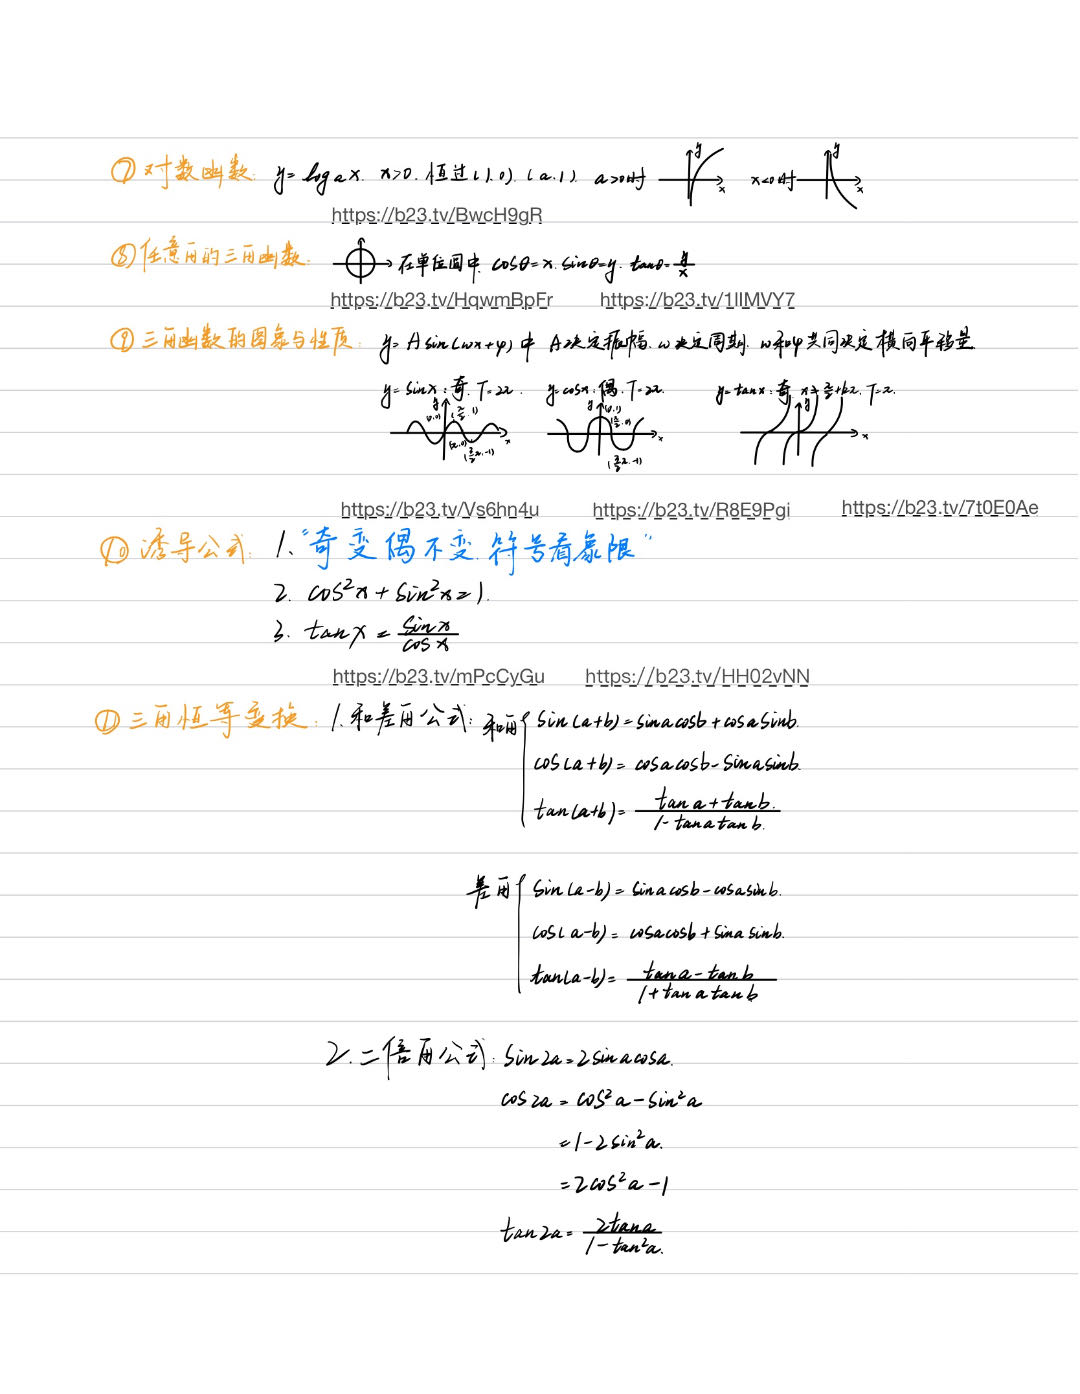 ⑦对数函数: y=logax. x>0. 恒过(1.0).(a.1). a>0时 y x x<0时 y x
https://b23.tv/BwcH9gR
⑧任意角的三角函数: 在单位圆中. cosθ=x. sinθ=y. tanθ=y/x
https://b23.tv/HqwmBpFr https://b23.tv/1IIMVY7
⑨三角函数的图象与性质: y=Asin(ωx+φ)中 A决定振幅. ω决定周期. ω和φ共同决定横向平移量.
y=sinx:奇.T=2π. y=cosx:偶.T=2π. y=tanx:奇.x≠π/2+kπ.T=π.
y (0,0) (π/2,1) (π,0) (3/2π,-1) x y (0,1) (π/2,0) (3/2π,-1) x y x
https://b23.tv/Vs6hn4u https://b23.tv/R8E9Pgi https://b23.tv/7t0E0Ae
⑩诱导公式: 1.“奇变偶不变.符号看象限”
2. cos²x+sin²x=1.
3. tanx=sinx/cosx
https://b23.tv/mPcCyGu https://b23.tv/HH02vNN
⑪三角恒等变换: 1.和差角公式: 和角{ sin(a+b)=sinacosb+cosasinb.
cos(a+b)=cosacosb-sinasinb.
tan(a+b)=tana+tanb./1-tanatanb.
差角{ sin(a-b)=sinacosb-cosasinb.
cos(a-b)=cosacosb+sinasinb.
tan(a-b)=tana-tanb/1+tanatanb
2.二倍角公式: sin2a=2sinacosa.
cos2a=cos²a-sin²a
=1-2sin²a.
=2cos²a-1
tan2a=2tana/1-tan²a.